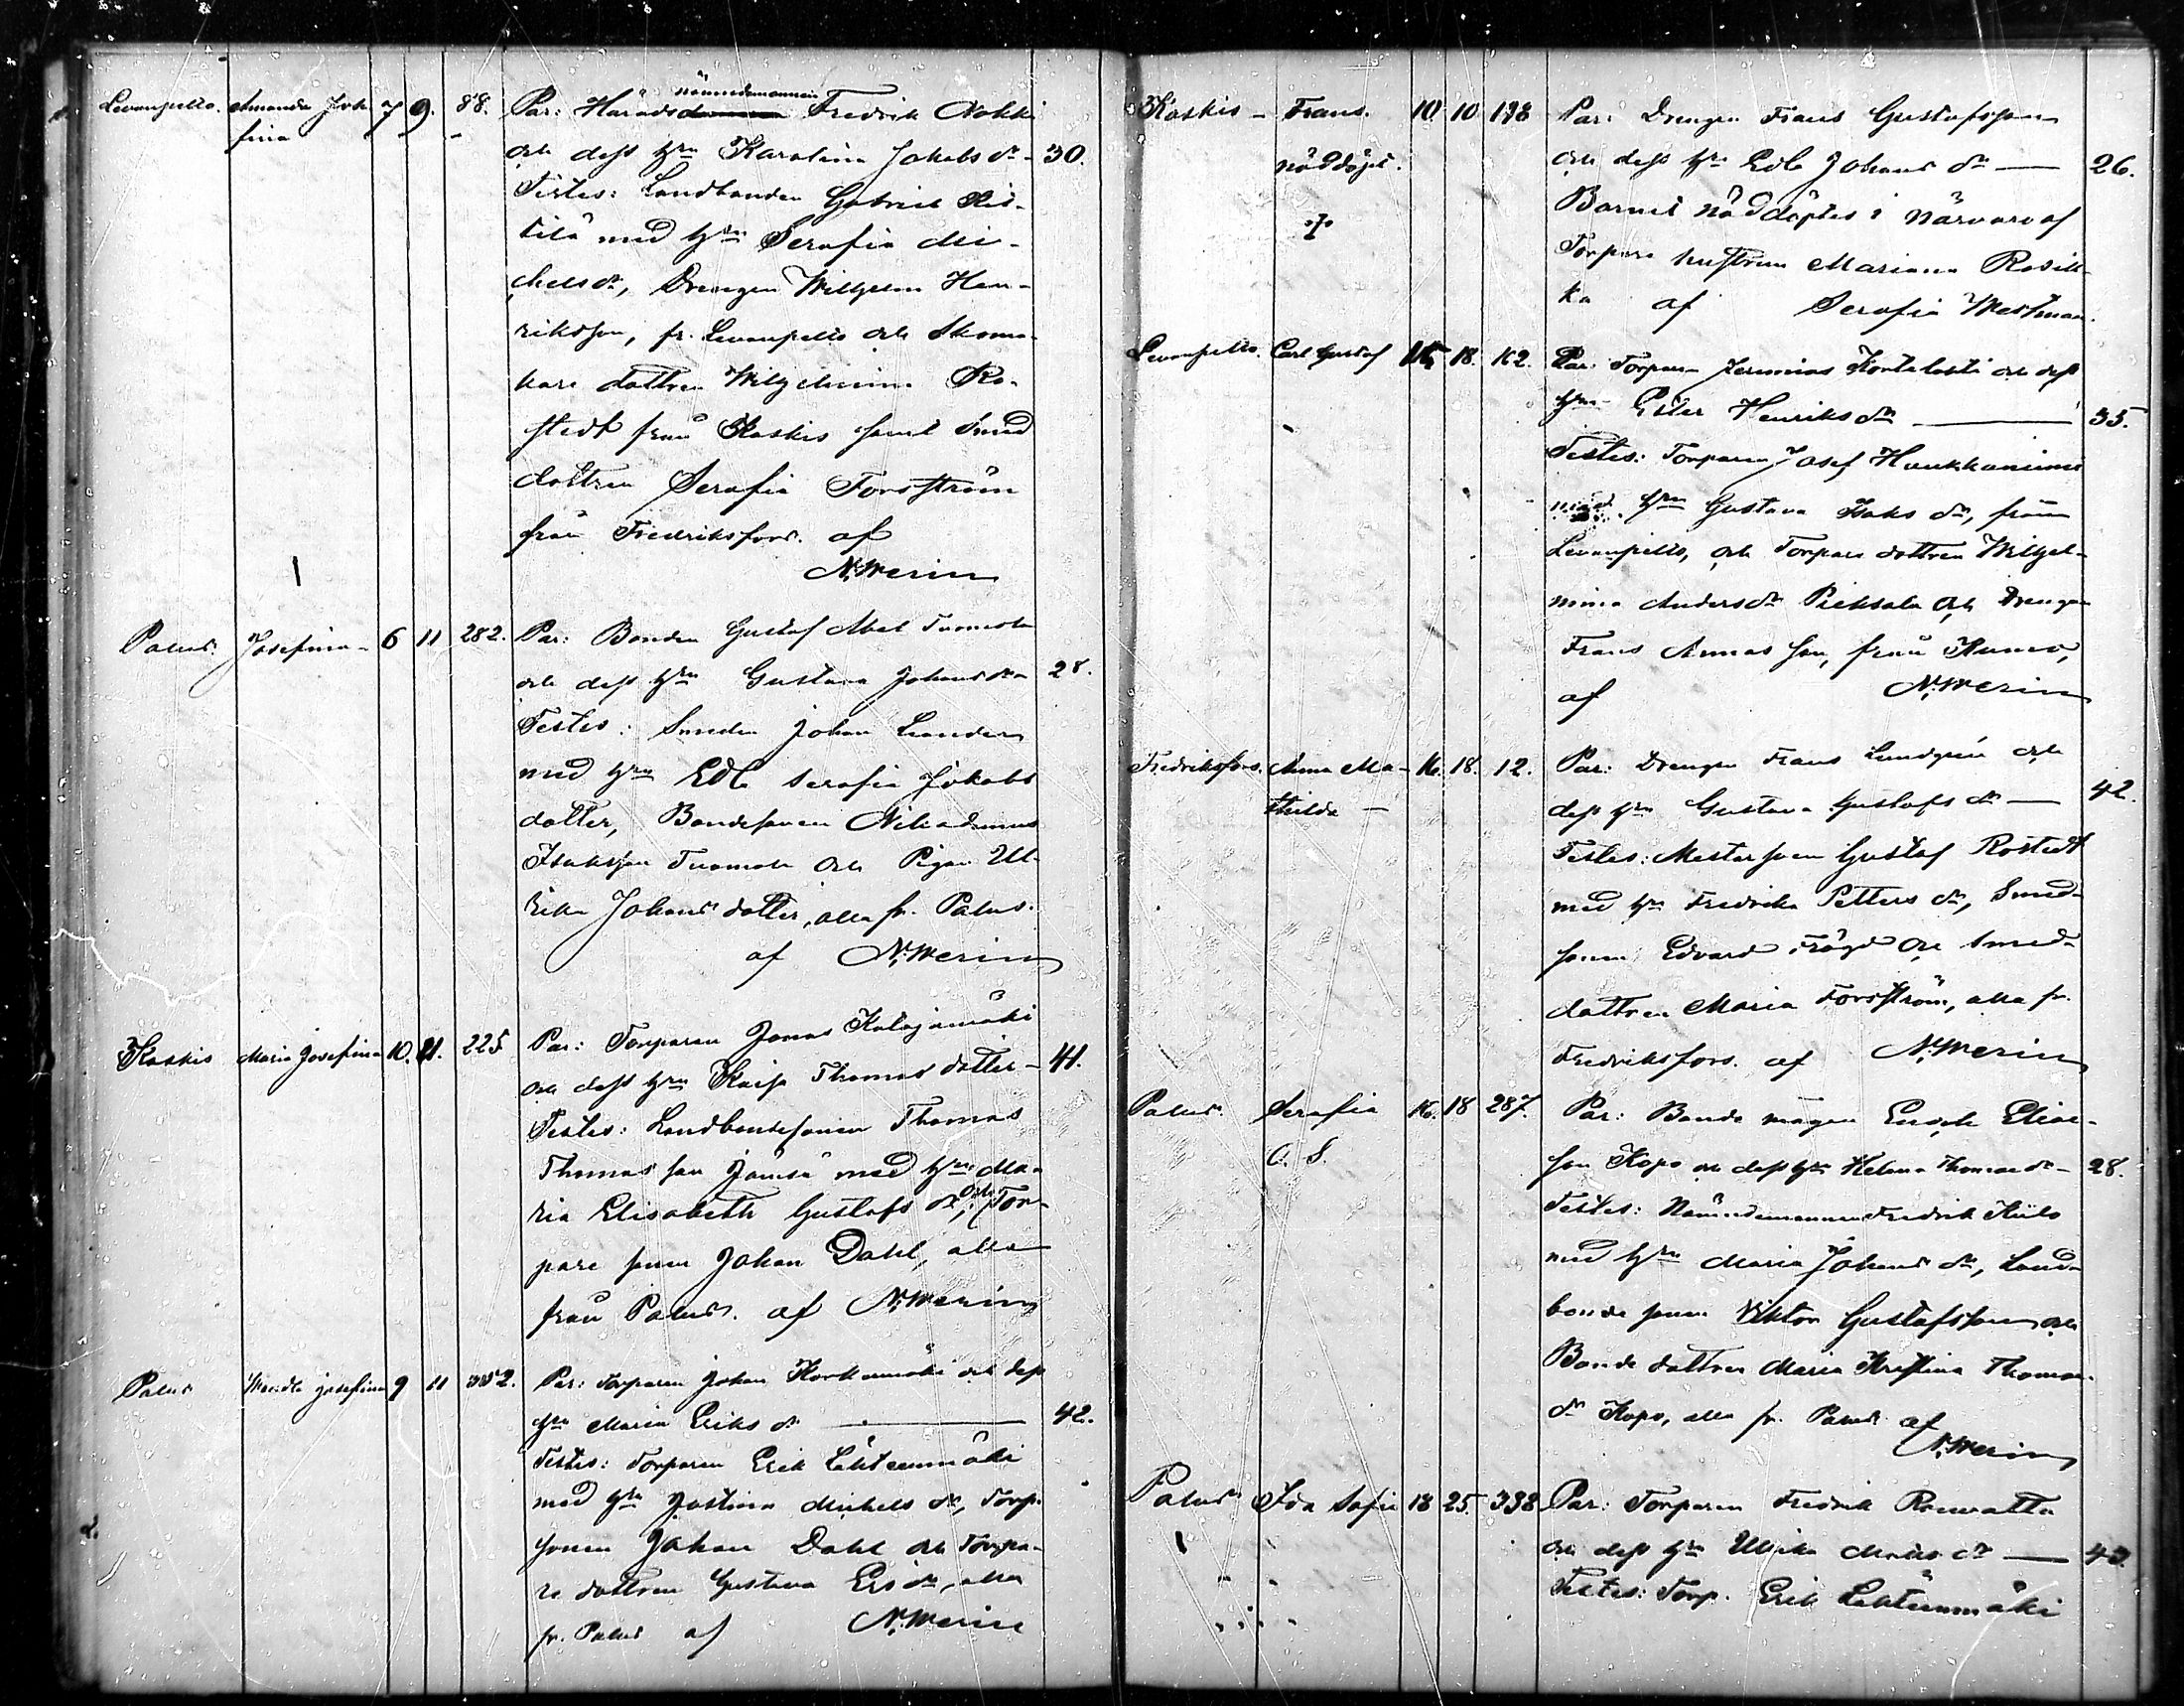 Levanpelto. Amanda Jose- 7 9. 88. Par: Härads nämndemannen Fredrik Nokki
fina och dess hru Karolina Jakobs dr - 30.
Testes: Landbonden Gabriel
tilä med hru Serafia Mi-
chelsdr, Drengen Wilhelm Hen-
riksson, fr. Levanpelto och Skoma-
kare dottren Wilhelmina Ro-
stedt från Kaskis samt Smed
dottren Serafia Forsström
från Fredriksfors. af
N. Merin
Palus. Josefina - 6 11 282. Par: Bonden Gustaf Abel Tuomola
och dess hru Gustava Johansdr 28.
Testes: Smeden Johan Leander
med hru Eva Serafia Jakobs
dotter, Bondesonen Nikodemus
Isaksson Tuomola och Pigan Ul-
rika Johans dotter, alla fr. Palus.
af N. Merin
Kaskis Maria Josefina 10. 11. 225 Par: Torparen Jonas Katajamäki
och dess hru Kaisa Thomas dotter - 41.
Testes: Landbondesonen Thomas
Thomas son Jämsä med hru Ma-
ria Elisabeth Gustafs dr, och Tor-
pare sonen Johan Dahl, alla
från Palus. af N. Merin
Palus Wendla Josefina 9 11 Par: Torparen Johan Korkiamäki och dess
hru Maria Eriks dr 42.
Testes: Torparen Erik Lähteenmäki
med hru Justina Michels dr, Torp.
sonen Johan Dahl och Torpa-
re dottren Gustava Ersdr, alla
fr. Palus af N. Merin
Kaskis - Frans. 10 10 198 Par: Drengen Frans Gustafsson
nöddöpt. och dess hru Eva Johans dr 26.
Barnet nöddöptes i närvaro af
Torpare hustrun Mariana Rosilk-
ka af Serafia Westman.
Levanpelto. Carl Gustaf 15 18. 162. Par: Torparen Jeremias Kortelahti och dess
hru Ester Henriks dr 35.
Testes: Torparen Josef Haukkaniemi
med hru Gustava Isaks dr, från
Levanpelto, och Torpare dottren Wilhel-
mina Anders dr Pieksala och Drengen
Frans Annas son, från Kumo,
af N. Merin
Fredriksfors. Anna Ma- 16. 18. 12. Par: Drengen Frans Lundgren och
thilda - dess hru Gustava Gustafs dr 42.
Testes: Mestersven Gustaf Rostedt
med hru Fredrika Petters dr, Smed-
sonen Edvard Frögd och Smed-
dottren Maria Forsström, alla fr.
Fredriksfors. af N. Merin
Palus Serafia 16. 18 287. Par: Bonde mågen Enoch Elias-
C. S. son Kopo och dess hru Helena Thomasdr - 28.
Testes: Nämndemannen Fredrik Kiilo
med hru Maria Johans dr, Land-
bonde sonen Viktor Gustafsson och
Bonde dottren Maria Kristina Thomas-
dr Kopo, alla fr. Palus af
N. Merin
Palus Ida Sofia 18 25. 338 Par: Torparen Fredrik Rouvatta
och dess hru Ulrika Matts dr 43.
Testes: Torp. Erik Lähteenmäki